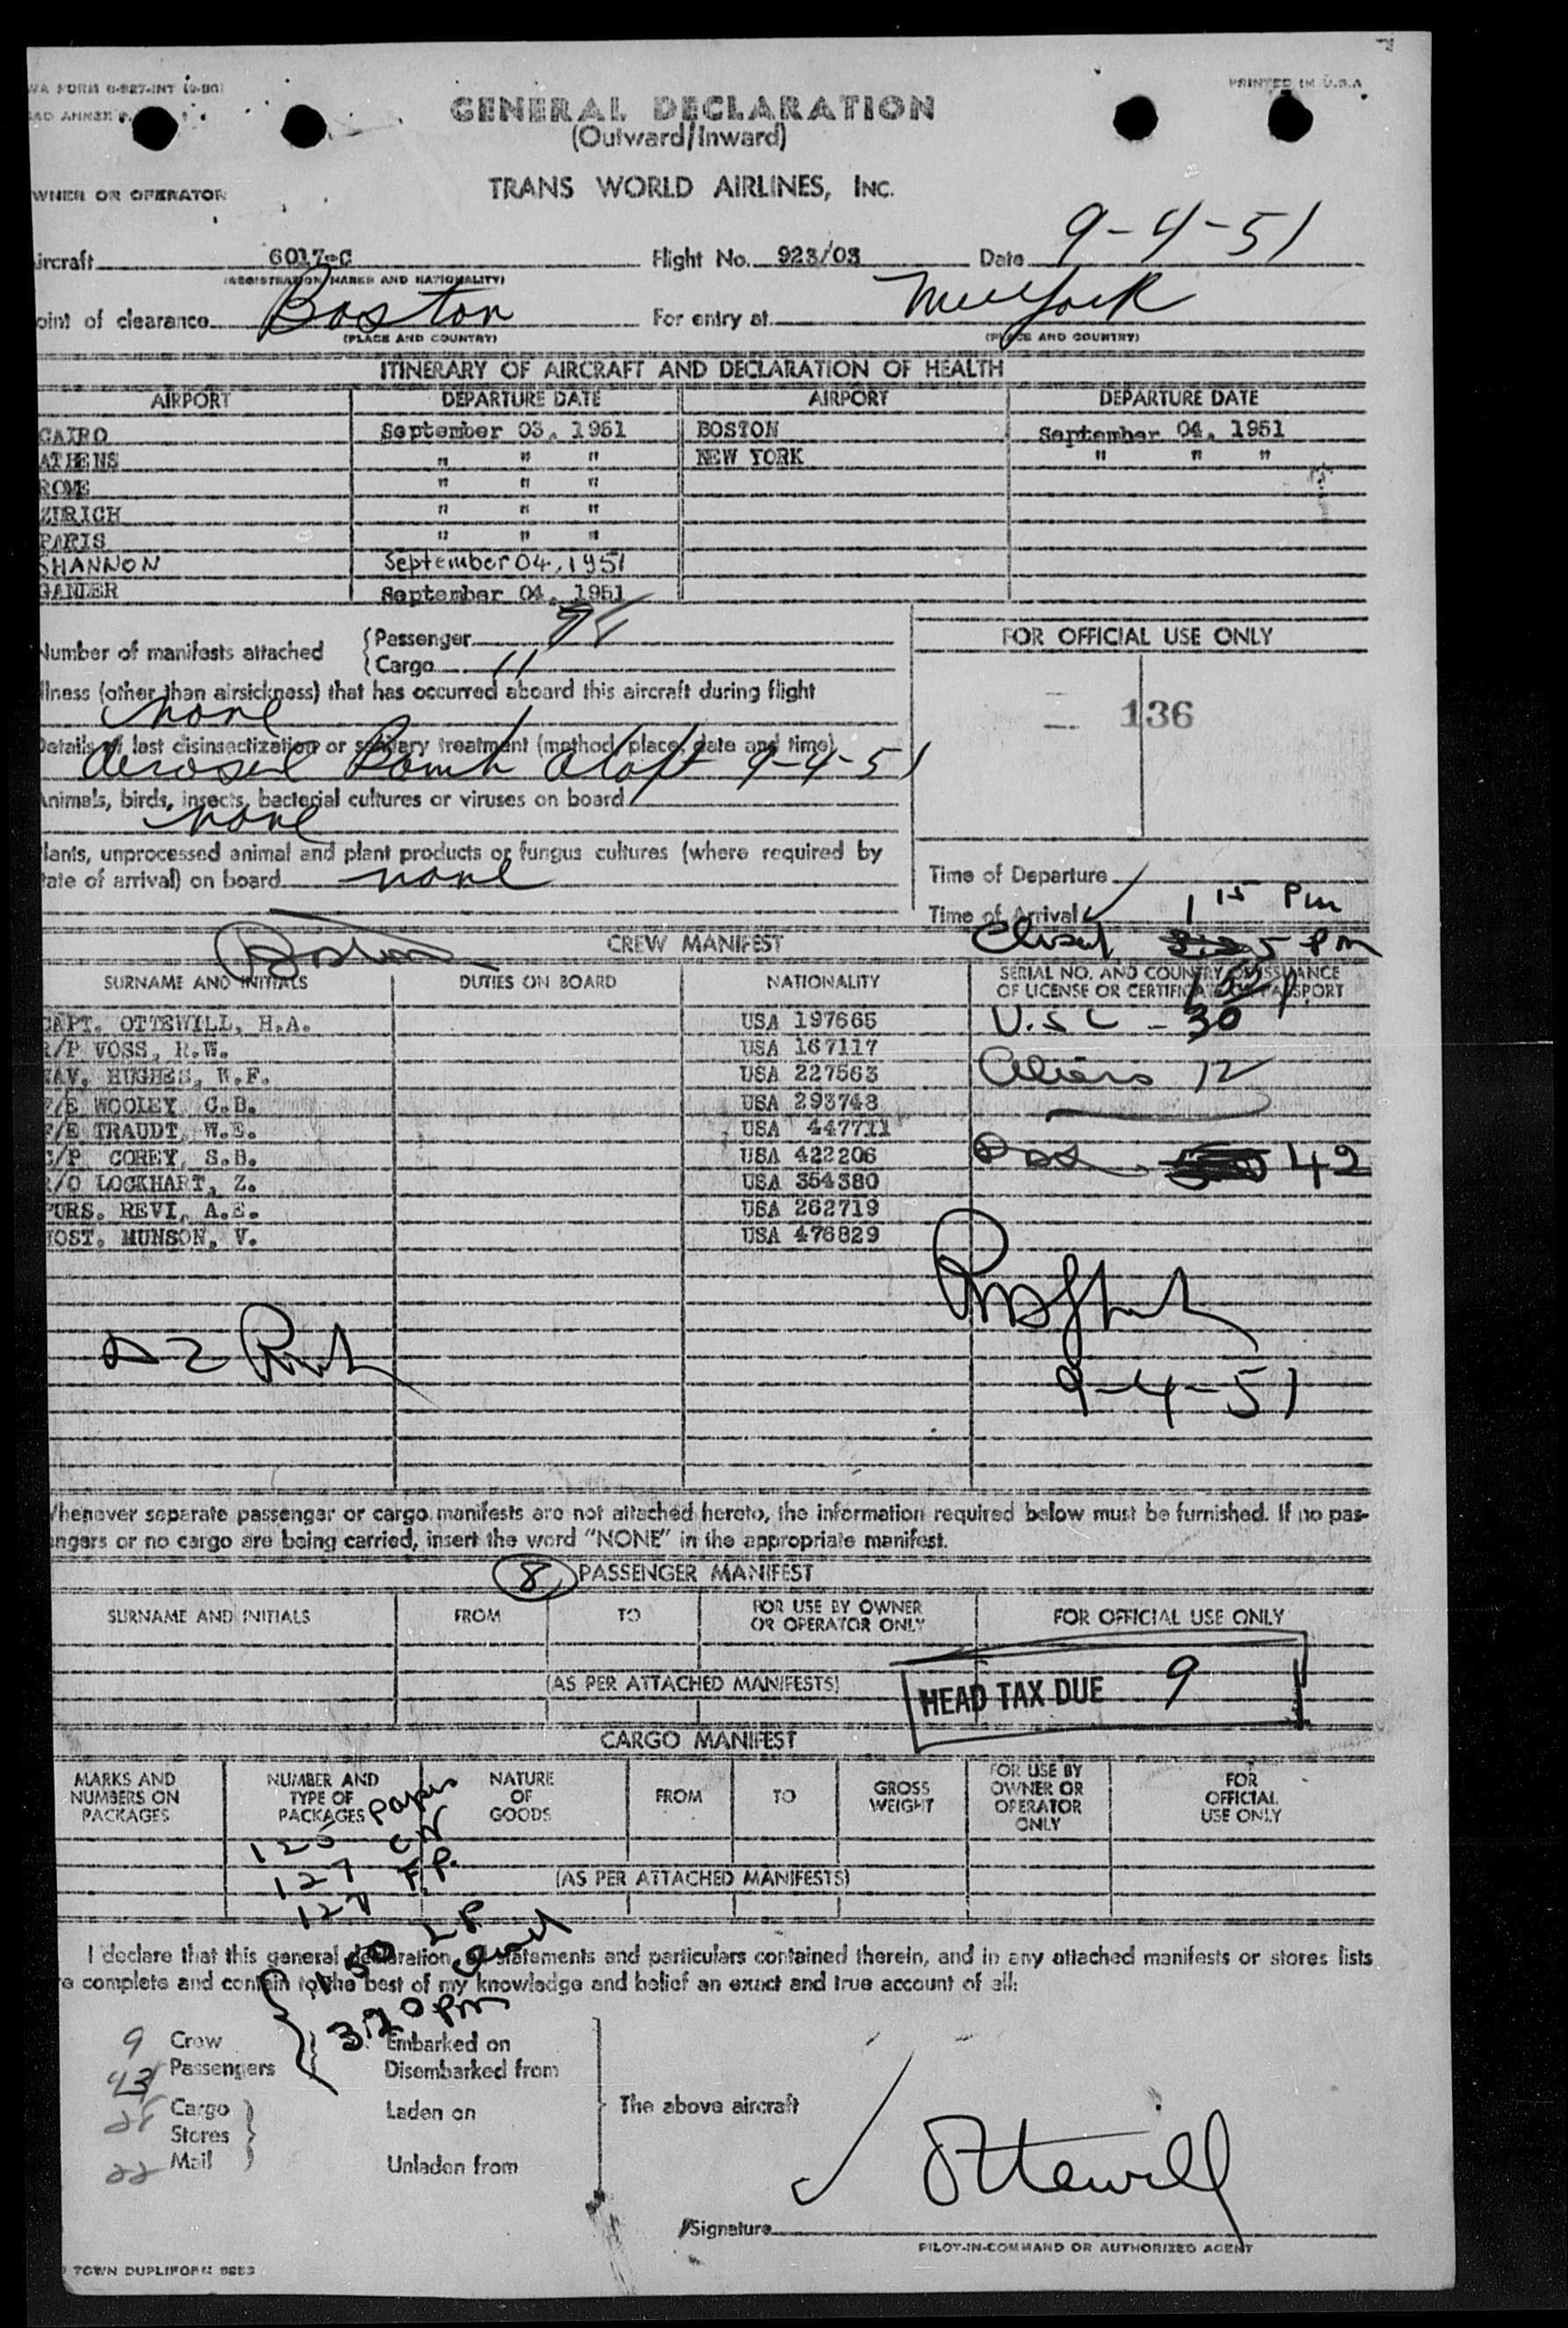 WA FORM
PRINTED IN U.S.A
GENERAL DECLARATION
(Outward/Inward)
WNER OR OPERATOR
TRANS WORLD AIRLINES, INC.
ircraft 6017-C Flight No. 923/03 Date 9-4-51
(REGISTRATION MARKS AND NATIONALITY)
oint of clearance Boston For entry at New York
(PLACE AND COUNTRY) (PLACE AND COUNTRY)
ITINERARY OF AIRCRAFT AND DECLARATION OF HEALTH
AIRPORT DEPARTURE DATE AIRPORT DEPARTURE DATE
CAIRO September 03, 1951 BOSTON September 04, 1951
ATHENS " " " NEW YORK " " "
ROME " " "
ZURICH " " "
PARIS " " "
SHANNON September 04, 1951
GANDER September 04, 1951
Number of manifests attached
Passenger
Cargo 11
FOR OFFICIAL USE ONLY
llness (other than airsickness) that has occurred aboard this aircraft during flight
none
136
Details of last disinsectization or sanitary treatment (method, place, date and time)
Aerosol Bomb Aloft 9-4-51
Animals, birds, insects, bacterial cultures or viruses on board
none
lants, unprocessed animal and plant products or fungus cultures (where required by
tate of arrival) on board none
Time of Departure
Time of Arrival 1 15 Pm
Boston
CREW MANIFEST
SURNAME AND INITIALS DUTIES ON BOARD NATIONALITY SERIAL NO. AND COUNTRY OF ISSUANCE
OF LICENSE OR CERTIFICATE OR PASSPORT
CAPT. OTTEWILL, H.A. USA 197665 U.S C - 30
R/P VOSS, R.W. USA 167117
NAV. HUGHES, W.F. USA 227563 Aliens 12
F/E WOOLEY C.B. USA 293748
F/E TRAUDT, W.E. USA 447711
C/P COREY, S.B. USA 422206 42
R/O LOCKHART, Z. USA 354380
PURS. REVI, A.E. USA 262719
HOST. MUNSON, V. USA 476829
9-4-51
Whenever separate passenger or cargo manifests are not attached hereto, the information required below must be furnished. If no pas-
engers or no cargo are being carried, insert the word "NONE" in the appropriate manifest.
8 PASSENGER MANIFEST
SURNAME AND INITIALS FROM TO FOR USE BY OWNER
OR OPERATOR ONLY FOR OFFICIAL USE ONLY
(AS PER ATTACHED MANIFESTS)
HEAD TAX DUE 9
CARGO MANIFEST
MARKS AND
NUMBERS ON
PACKAGES NUMBER AND
TYPE OF
PACKAGES NATURE
OF
GOODS FROM TO GROSS
WEIGHT FOR USE BY
OWNER OR
OPERATOR
ONLY FOR
OFFICIAL
USE ONLY
125 papers
127
127 F.P.
(AS PER ATTACHED MANIFESTS)
I declare that this general declaration, all statements and particulars contained therein, and in any attached manifests or stores lists
re complete and contain to the best of my knowledge and belief an exact and true account of all:
320 pm
9 Crew Embarked on
43 Passengers Disembarked from
Cargo Laden on The above aircraft
Stores
22 Mail Unladen from
Ottewill
Signature
PILOT-IN-COMMAND OR AUTHORIZED AGENT
TOWN DUPLIFORM